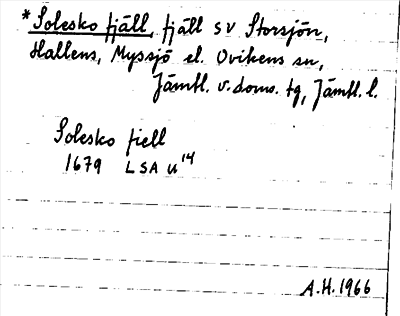 *Solesko fjäll, fjäll SV Storsjön,
Hallens, Myssjö el. Ovikens sn,
Jämtl. v. doms. tg, Jämtl. l.
Solesko fiell
1679 LSA U14
A.H. 1966